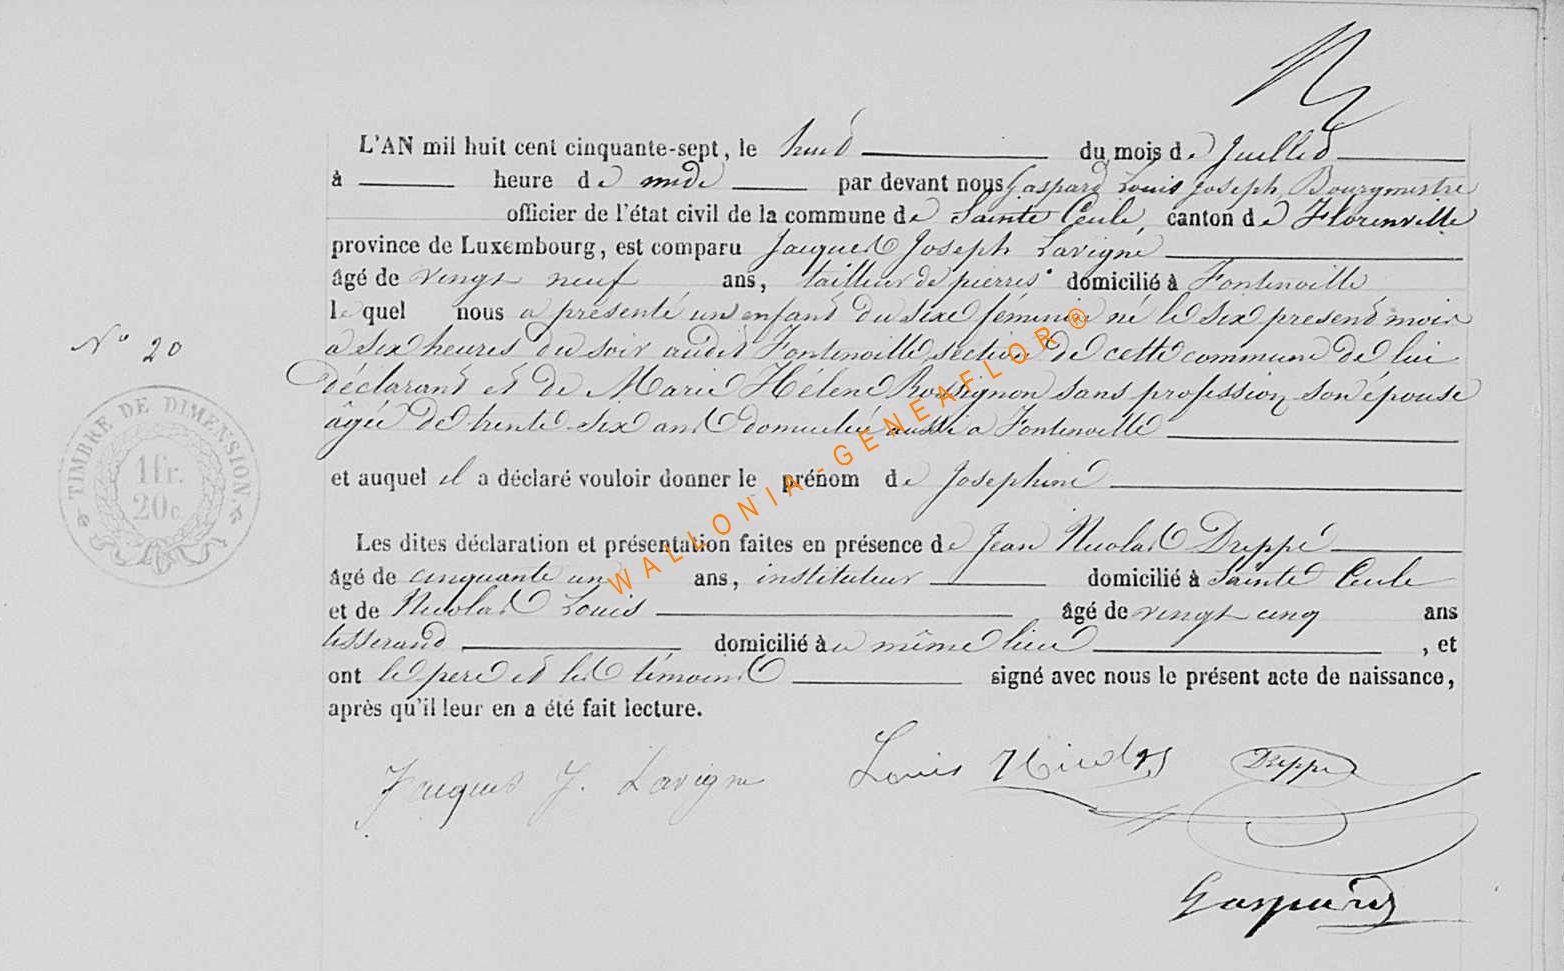 L'AN mil huit cent cinquante-sept, le huit du mois de Juillet
à heure de midi par devant nous Gaspard Louis Joseph, Bourgmestre
officier de l'état civil de la commune de Sainte Cecile, canton de Florenville
province de Luxembourg, est comparu Jacques Joseph Lavigne
âgé de vingt neuf ans, tailleur de pierres domicilié à Fontenoille
le quel nous a présenté un enfant du sexe féminin né le six present mois
a six heures du soir audit Fontenoille section de cette commune de lui
déclarant et de Marie Hélene Rossignon sans profession son épouse
N° 20
âgée de trente-six ans domiciliée aussi a Fontenoille
TIMBRE DE DIMENSION
1fr.
20c.
et auquel il a déclaré vouloir donner le prénom de Josephine
Les dites déclaration et présentation faites en présence de Jean Nicolas Dreppe
âgé de cinquante un ans, instituteur domicilié à Sainte Cecile
et de Nicolas Louis âgé de vingt cinq ans
tisserand domicilié à u même lieu , et
ont le pere et les témoins signé avec nous le présent acte de naissance,
après qu'il leur en a été fait lecture.
Jacques J. Lavigne Louis Nicolas Dreppe
Gaspard
WALLONIA-GENEAFLOR®